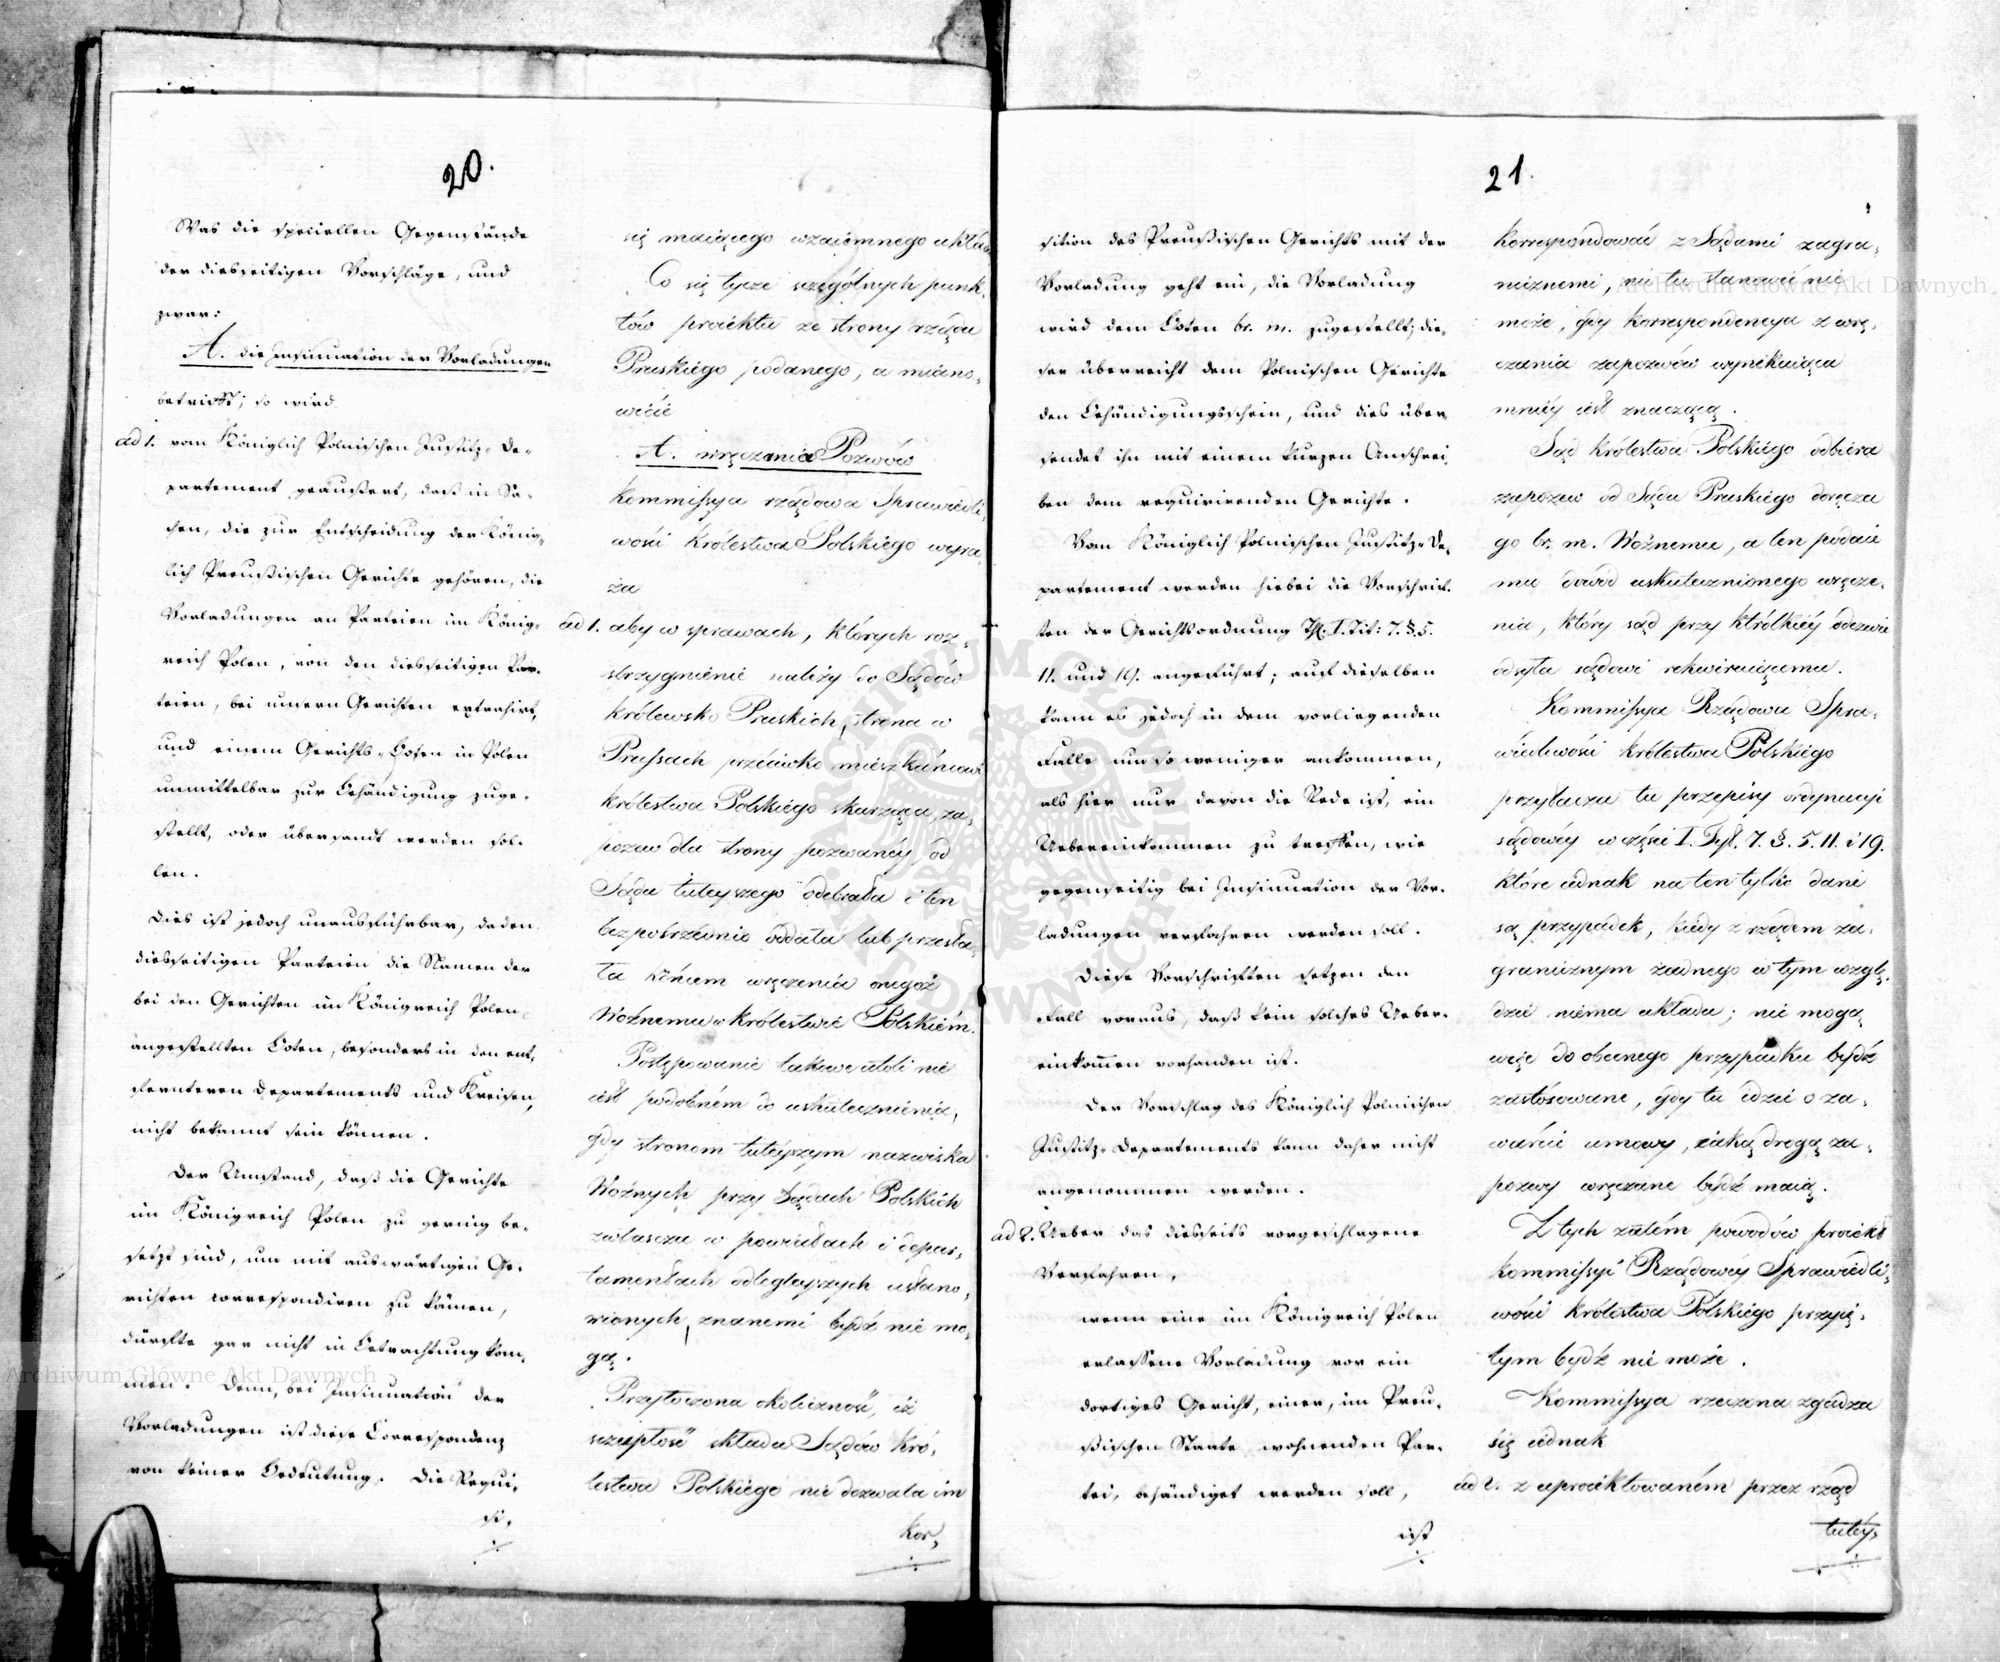 20.
Was die speciellen Gegenstände
der diesseitigen Vorschläge, und
zwar:
A. die Insinuation der Vorladungen
betrifft; so wird
ad 1. vom Königlich Polnischen Justitz-De-
partement geäußert, daß in Sa-
chen, die zur Entscheidung der König-
lich Preußischen Gerichte gehören, die
Vorladungen an Parteien im König-
reich Polen, von den diesseitigen Par-
teien, bei unsern Gerichten extrahirt,
und einem Gerichts-Boten in Polen
unmittelbar zur Behändigung zuge-
stellt, oder übersandt werden sol-
len.
Dies ist jedoch unausführbar, da den
diesseitigen Parteien die Namen der
bei den Gerichten im Königreich Polen
angestellten Boten, besonders in den ent-
fernteren Departements und Kreisen,
nicht bekannt sein können.
Der Umstand, daß die Gerichte
im Königreich Polen zu gering be-
setzt sind, um mit auswärtigen Ge-
richten correspondiren zu können,
dürfte gar nicht in Betrachtung kom-
men. Denn, bei Insinuation der
Vorladungen ist diese Correspondenz
von keiner Bedeutung. Die Requi-
si-
się maiącego wzaiemnego układu
Co się tycze szczególnych punk-
tów proiektu ze strony rządu
Pruskiego podanego, a miano-
wicie
A. wręczania Pozwów
Kommissya rządowa Sprawiedli-
wości Królestwa Polskiego wyra-
ża
ad 1. aby w sprawach, których roz-
strzygnienie należy do Sądów
Królewsko Pruskich, strona w
Prussach przeciwko mieszkańcowi
Królestwa Polskiego skarżąca, za-
pozew dla strony pozwanéy, od
Sądu tuteyszego odebrała i ten
bezpośrzednio oddała lub przesła-
ła końcem wręczenia onegoż
Woźnemu w Królestwie Polskiém.
Postępowanie takowe atoli nie
iest podobném do uskutecznienia,
gdy stronom tuteyszym nazwiska
Woźnych przy Sądach Polskich
zwłaszcza w powiatach i depar-
tamentach odlegleyszych ustano-
wionych, znanemi bydź nie mo-
gą.
Przytoczona okoliczność, iż
szczupłość składu Sądów Kró-
lestwa Polskiego nie dozwala im
kor-
21.
sition des Preußischen Gerichts mit der
Vorladung geht ein, die Vorladung
wird dem Boten br. m. zugestellt; die-
ser überreicht dem Polnischen Gerichte
den Behändigungsschein, und dies über-
sendet ihn mit einem kurzen Anschrei-
ben dem requirirenden Gerichte.
Vom Königlich Polnischen Justitz-De-
partement werden hiebei die Vorschrif-
ten der Gerichtsordnung Th. I. Tit: 7. §. 5.
11. und 19. angeführt; auf dieselben
kann es jedoch in dem vorliegenden
Falle um so weniger ankommen,
als hier nur davon die Rede ist, ein
Uebereinkommen zu treffen, wie
gegenseitig bei Insinuation der Vor-
ladungen verfahren werden soll.
Diese Vorschriften setzen den
Fall voraus, daß kein solches Ueber-
einkom̄en vorhanden ist.
Der Vorschlag des Königlich Polnischen
Justitz-Departements kann daher nicht
angenommen werden.
ad 2. Ueber das diesseits vorgeschlagene
Verfahren,
wenn eine im Königreich Polen
erlassene Vorladung vor ein
dortiges Gericht, einer, im Preu-
ßischen Staate wohnenden Par-
tei, behändiget werden soll,
ist
korrespondować z Sądami zagra-
nicznemi, nic tu stanowić nie
może, gdy korrespondencya z wrę-
czania zapozwów wynikaiąca
mniéy iest znaczącą.
Sąd Królestwa Polskiego odbiera
zapozew od Sądu Pruskiego doręcza
go br. m. Woźnemu, a ten podaie
mu dowód uskutecznionego wręcze-
nia, który sąd przy krótkiéy odezwie
odsyła sądowi rekwiruiącemu.
Kommissya Rządowa Spra-
wiedliwości Królestwa Polskiego
przytacza tu przepisy ordynacyi
sądowéy w części I. Tyt. 7. §. 5. 11. i 19.
które iednak na ten tylko dane
są przypadek, kiedy z rządem za-
granicznym żadnego w tym wzglę-
dzie niema układu; nie mogą
więc do obecnego przypadku bydź
zastósowane, gdy tu idzie o za-
warcie umowy, iaką drogą za-
pozwy wręczane bydź maią.
Z tych zatém powodów proiekt
Kommissyi Rządowéy Sprawiedli-
wości Królestwa Polskiego przyię-
tym bydź nie może.
Kommissya rzeczona zgadza
się iednak
ad 2. z uproiektowaném przez rząd
tutéy-